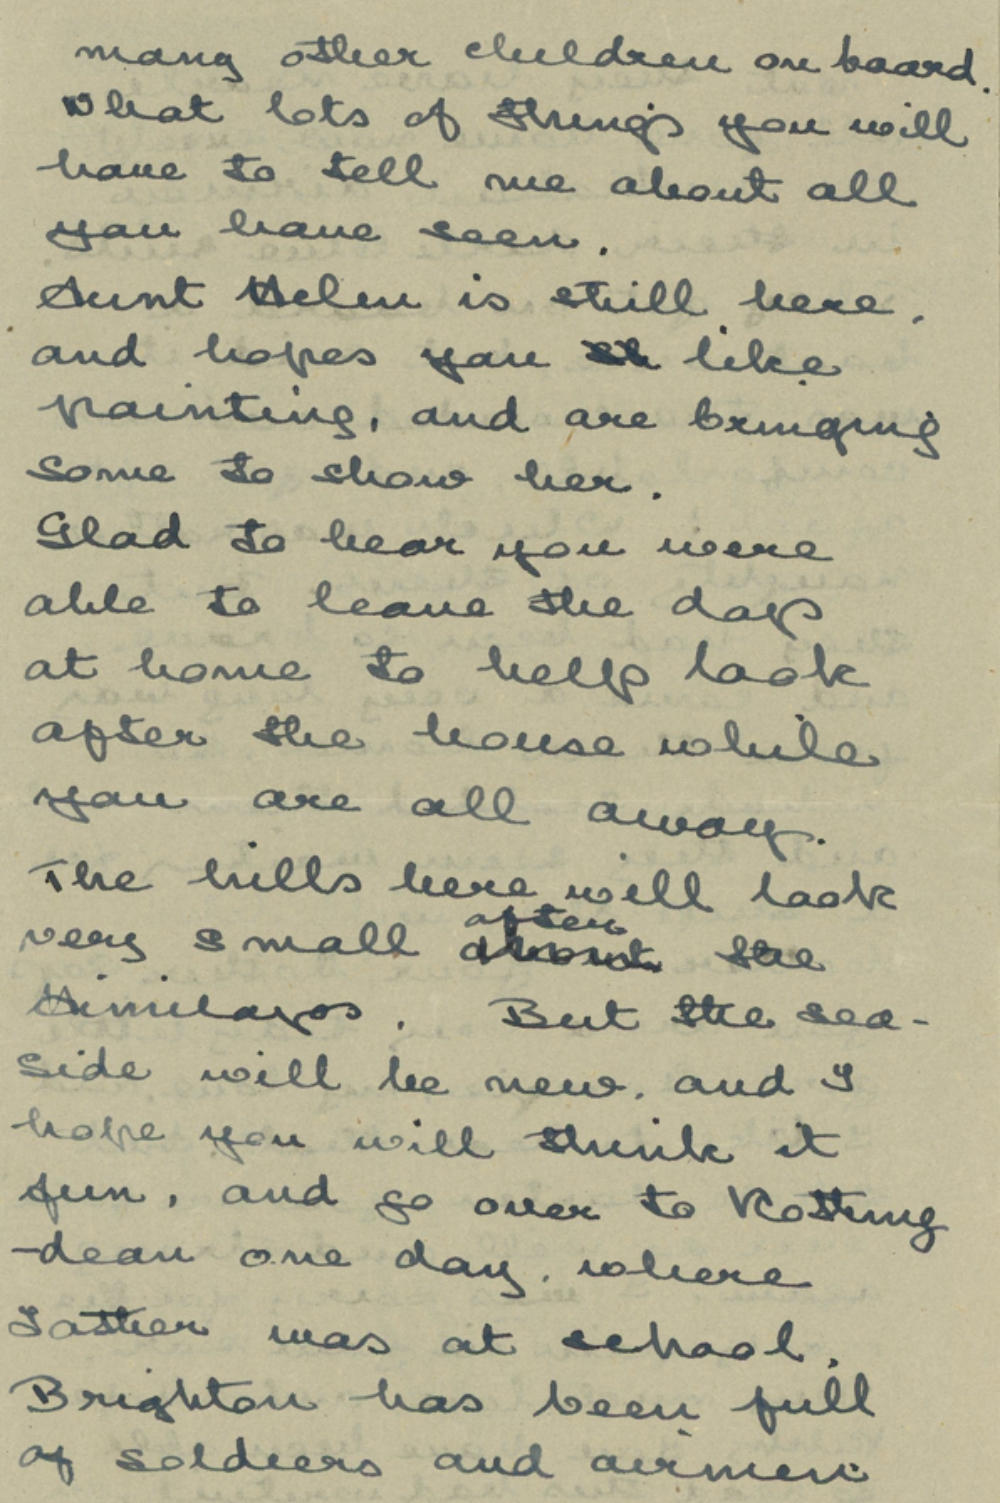 many other children on board.
What lots of things you will
have to tell me about all
you have seen.
Aunt Helen is still here,
and hopes you like
painting, and are bringing
some to show her.
Glad to hear you were
able to leave the dogs
at home to help look
after the house while
you are all away.
The hills here will look
after
very small about the
Himilayas. But the sea-
side will be new, and I
hope you will think it
fun, and go over to Rotting
-dean one day, where
Father was at school.
Brighton has been full
of soldiers and airmen